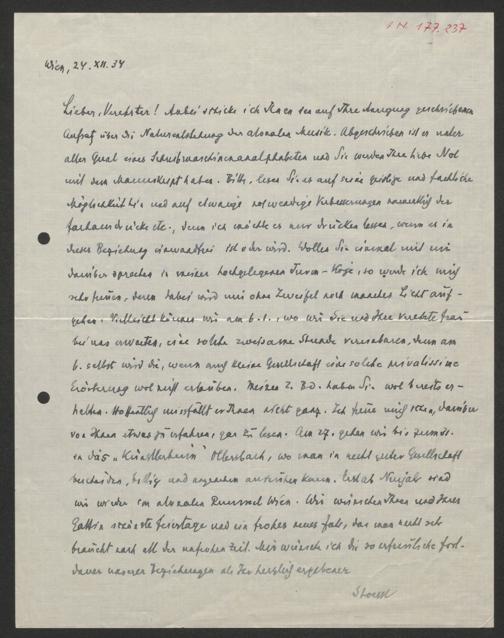 I.N. 177.237
Wien, 24. XII. 34
Lieber, Verehrter! Anbei schicke ich Ihnen den auf Ihre Anregung geschriebenen
Aufsatz über die Naturentstehung der atonalen Musik. Abgeschrieben ist er unter
aller Qual eines Schreibmaschinenanalphabeten und Sie werden Ihre liebe Not
mit dem Manuskript haben. Bitte, lesen Sie es auf seine geistige und fachliche
Möglichkeit hin und auf etwaige notwendige Verbesserungen namentlich der
Fachausdrücke etc., denn ich möchte es nur drucken lassen, wenn es in
dieser Beziehung einwandfrei ist oder wird. Wollen Sie einmal mit mir
darüber sprechen in meiner hochgelegenen Turm-Koje, so würde ich mich
sehr freuen, denn dabei wird mir ohne Zweifel noch manches Licht auf-
gehen. Vielleicht können wir am 6. 1., wo wir Sie und Ihre verehrte Frau
bei uns erwarten, eine solche zweisame Stunde vereinbaren, denn am
6. selbst wird die, wenn auch kleine Gesellschaft eine solche privatissime
Erörterung wol nicht erlauben. Meinen 2. Bd. haben Sie wol bereits er-
halten. Hoffentlich missfällt er Ihnen nicht ganz. Ich freue mich schon, darüber
von Ihnen etwas zu erfahren, gar zu lesen. Am 27. gehen wir bis
in das „Künstlerheim" Ollersbach, wo man in recht guter Gesellschaft
bescheiden, billig und angenehm ausruhen kann. Erst ab Neujahr sind
wir wieder im atonalen Rummel Wien. Wir wünschen Ihnen und Ihrer
Gattin schönste Feiertage und ein frohes neues Jahr, das man recht sehr
braucht nach all der unfrohen Zeit. Mir wünsche ich die so erfreuliche Fort-
dauer unserer Beziehungen als Ihr herzlich ergebener
Stoessl